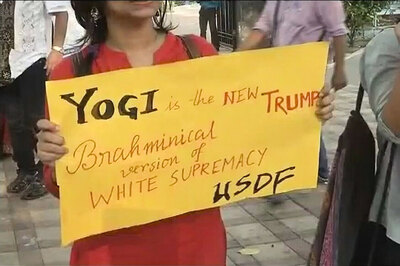 YOGI is the NEW TRUMP
Brahminical
version of
WHITE SUPREMACY
USDF